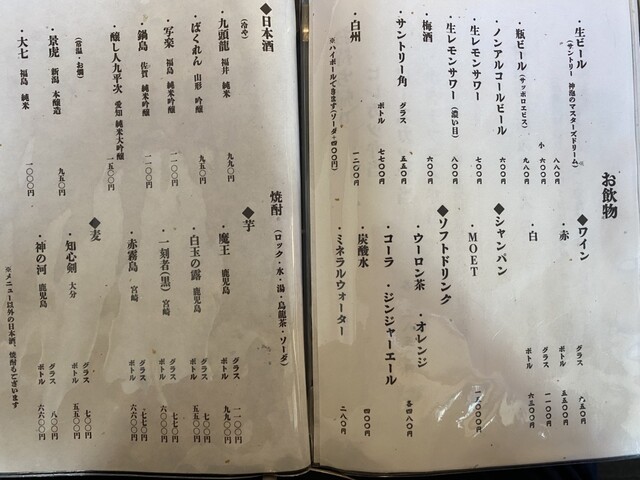 お飲物
・生ビール
(サントリー 神泡のマスターズドリーム)
八八〇円
小 六〇〇円
・瓶ビール(サッポロエビス)
九八〇円
・ノンアルコールビール
六〇〇円
・生レモンサワー
七〇〇円
・生レモンサワー(濃い目)
八〇〇円
・梅酒
六〇〇円
・サントリー角
グラス 五五〇円
ボトル 七七〇〇円
・白州
一二〇〇円
※ハイボールできます(ソーダ+四〇〇円)
◆ワイン
・赤
グラス 九五〇円
ボトル 五五〇〇円
・白
グラス 一一〇〇円
ボトル 六三〇〇円
◆シャンパン
・MOET
◆ソフトドリンク
・ウーロン茶 ・オレンジ
・コーラ ・ジンジャーエール
各四八〇円
・炭酸水
四〇〇円
・ミネラルウォーター
二八〇円
◆日本酒
(冷や)
・九頭龍 福井 純米
九九〇円
・ばくれん 山形 吟醸
九五〇円
・写楽 福島 純米吟醸
一一〇〇円
・鍋島 佐賀 純米吟醸
一一〇〇円
・醸し人九平次 愛知 純米大吟醸
一五〇〇円
(常温・お燗)
・景虎 新潟 本醸造
九五〇円
・大七 福島 純米
一〇〇〇円
焼酎(ロック・水・湯・烏龍茶・ソーダ)
◆芋
・魔王 鹿児島
グラス 一一〇〇円
ボトル 九九〇〇円
・白玉の露 鹿児島
グラス 七七〇円
ボトル 五五〇〇円
・一刻者(黒) 宮崎
グラス 七七〇円
ボトル 六六〇〇円
・赤霧島 宮崎
グラス 七七〇円
ボトル 六六〇〇円
◆麦
・知心剣 大分
グラス 七〇〇円
ボトル 五五〇〇円
・神の河 鹿児島
グラス 八〇〇円
ボトル 六六〇〇円
※メニュー以外の日本酒、焼酎もございます